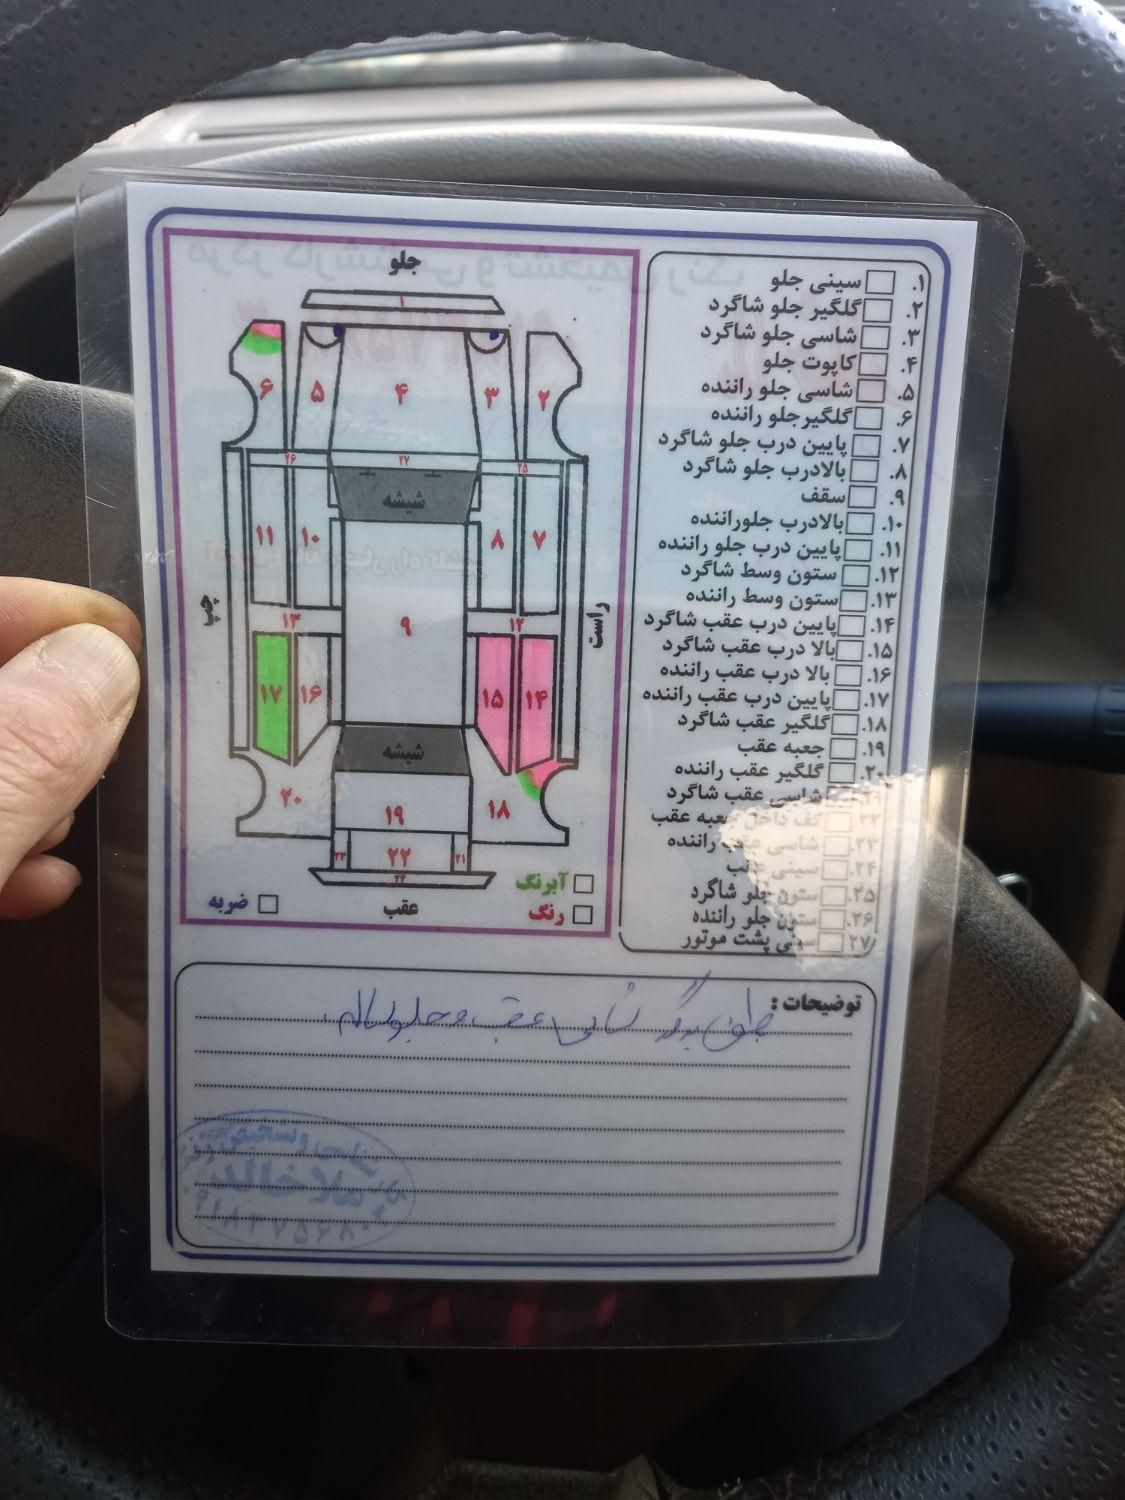 جلو
۱
۶
۵
۴
۳
۲
۲۶
۲۷
۲۵
شیشه
۱۱
۱۰
۸
۷
چپ
راست
۱۳
۹
۱۲
۱۷
۱۶
۱۵
۱۴
شیشه
۲۰
۱۹
۱۸
۲۳
۲۲
۲۱
۲۴
آبرنگ
رنگ
ضربه
عقب
۱. سینی جلو
۲. گلگیر جلو شاگرد
۳. شاسی جلو شاگرد
۴. کاپوت جلو
۵. شاسی جلو راننده
۶. گلگیرجلو راننده
۷. پایین درب جلو شاگرد
۸. بالادرب جلو شاگرد
۹. سقف
۱۰. بالادرب جلوراننده
۱۱. پایین درب جلو راننده
۱۲. ستون وسط شاگرد
۱۳. ستون وسط راننده
۱۴. پایین درب عقب شاگرد
۱۵. بالا درب عقب شاگرد
۱۶. بالا درب عقب راننده
۱۷. پایین درب عقب راننده
۱۸. گلگیر عقب شاگرد
۱۹. جعبه عقب
۲۰. گلگیر عقب راننده
۲۱. شاسی عقب شاگرد
۲۲. کف داخل جعبه عقب
۲۳. شاسی عقب راننده
۲۴. سینی عقب
۲۵. ستون جلو شاگرد
۲۶. ستون جلو راننده
۲۷. سینی پشت موتور
توضیحات :
عقب و جلو سالم